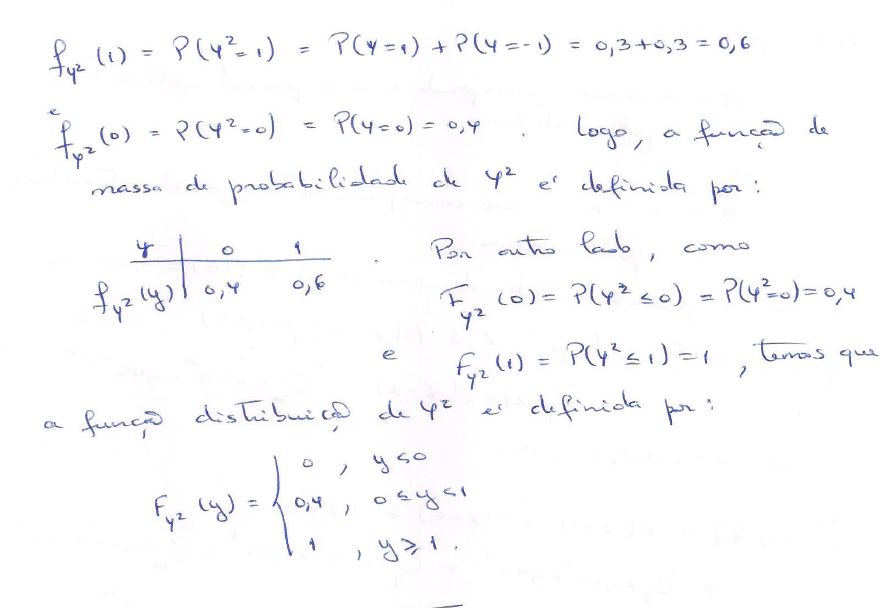 f_{Y²}(1) = P(Y²=1) = P(Y=1) + P(Y=-1) = 0,3+0,3 = 0,6
e
f_{Y²}(0) = P(Y²=0) = P(Y=0) = 0,4 . Logo, a função de
massa de probabilidade de Y² é definida por:
y | 0 1 . Por outro lado, como
f_{Y²}(y) | 0,4 0,6 F_{Y²}(0) = P(Y²≤0) = P(Y²=0) = 0,4
e F_{Y²}(1) = P(Y²≤1) = 1 , temos que
a função distribuição de Y² é definida por:
0 , y<0
F_{Y²}(y) = { 0,4 , 0≤y<1
1 , y≥1.